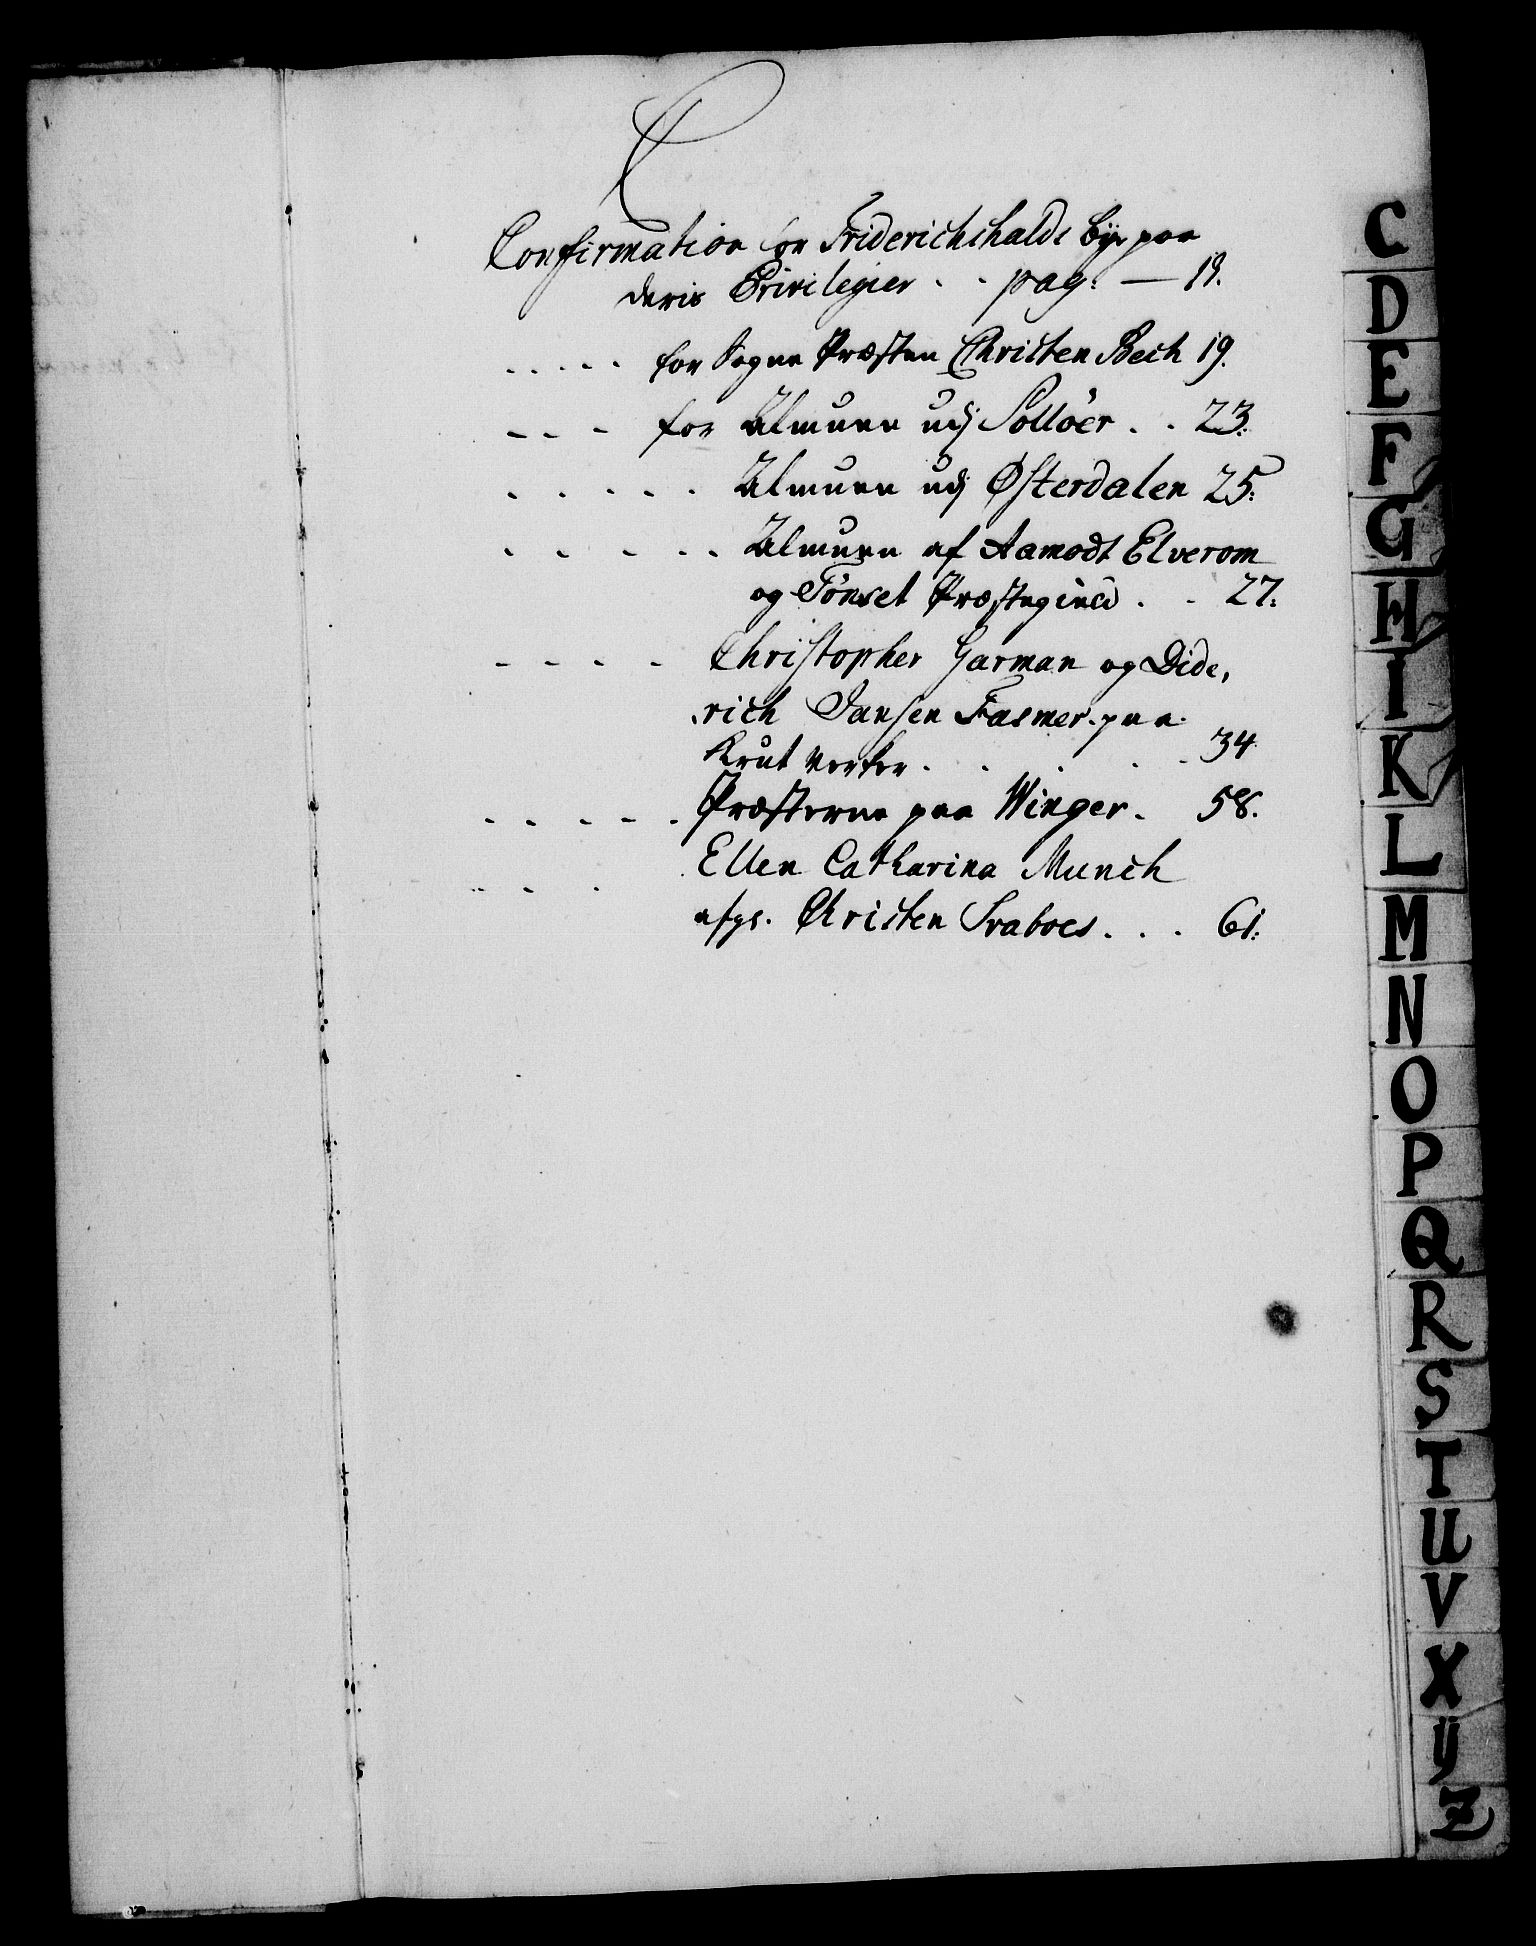 C
Confirmation for Friderichshalds bÿe paa
deris Privilegier . . pag: — 19.
. . . . . for Sogne Præsten Christen Bech 19.
- - - for Almuen udj Solløer . . 23.
. . . . . Almuen udj Østerdalen 25:
. . . . . Almuen af Aamodt Elverom
og Tønset Præstegield . . 27:
- - - - Christopher Garman og Dide,
,rich Jansen Fasmer paa
Krut verker . . . . . 34
. . . . . Præsterne paa Winger . 58.
. . . Ellen Catharina Munch
afg. Christen Svaboes . . . 61:
C
D
E
F
G
H
I
K
L
M
N
O
P
Q
R
S
T
U
V
X
ÿ
Z